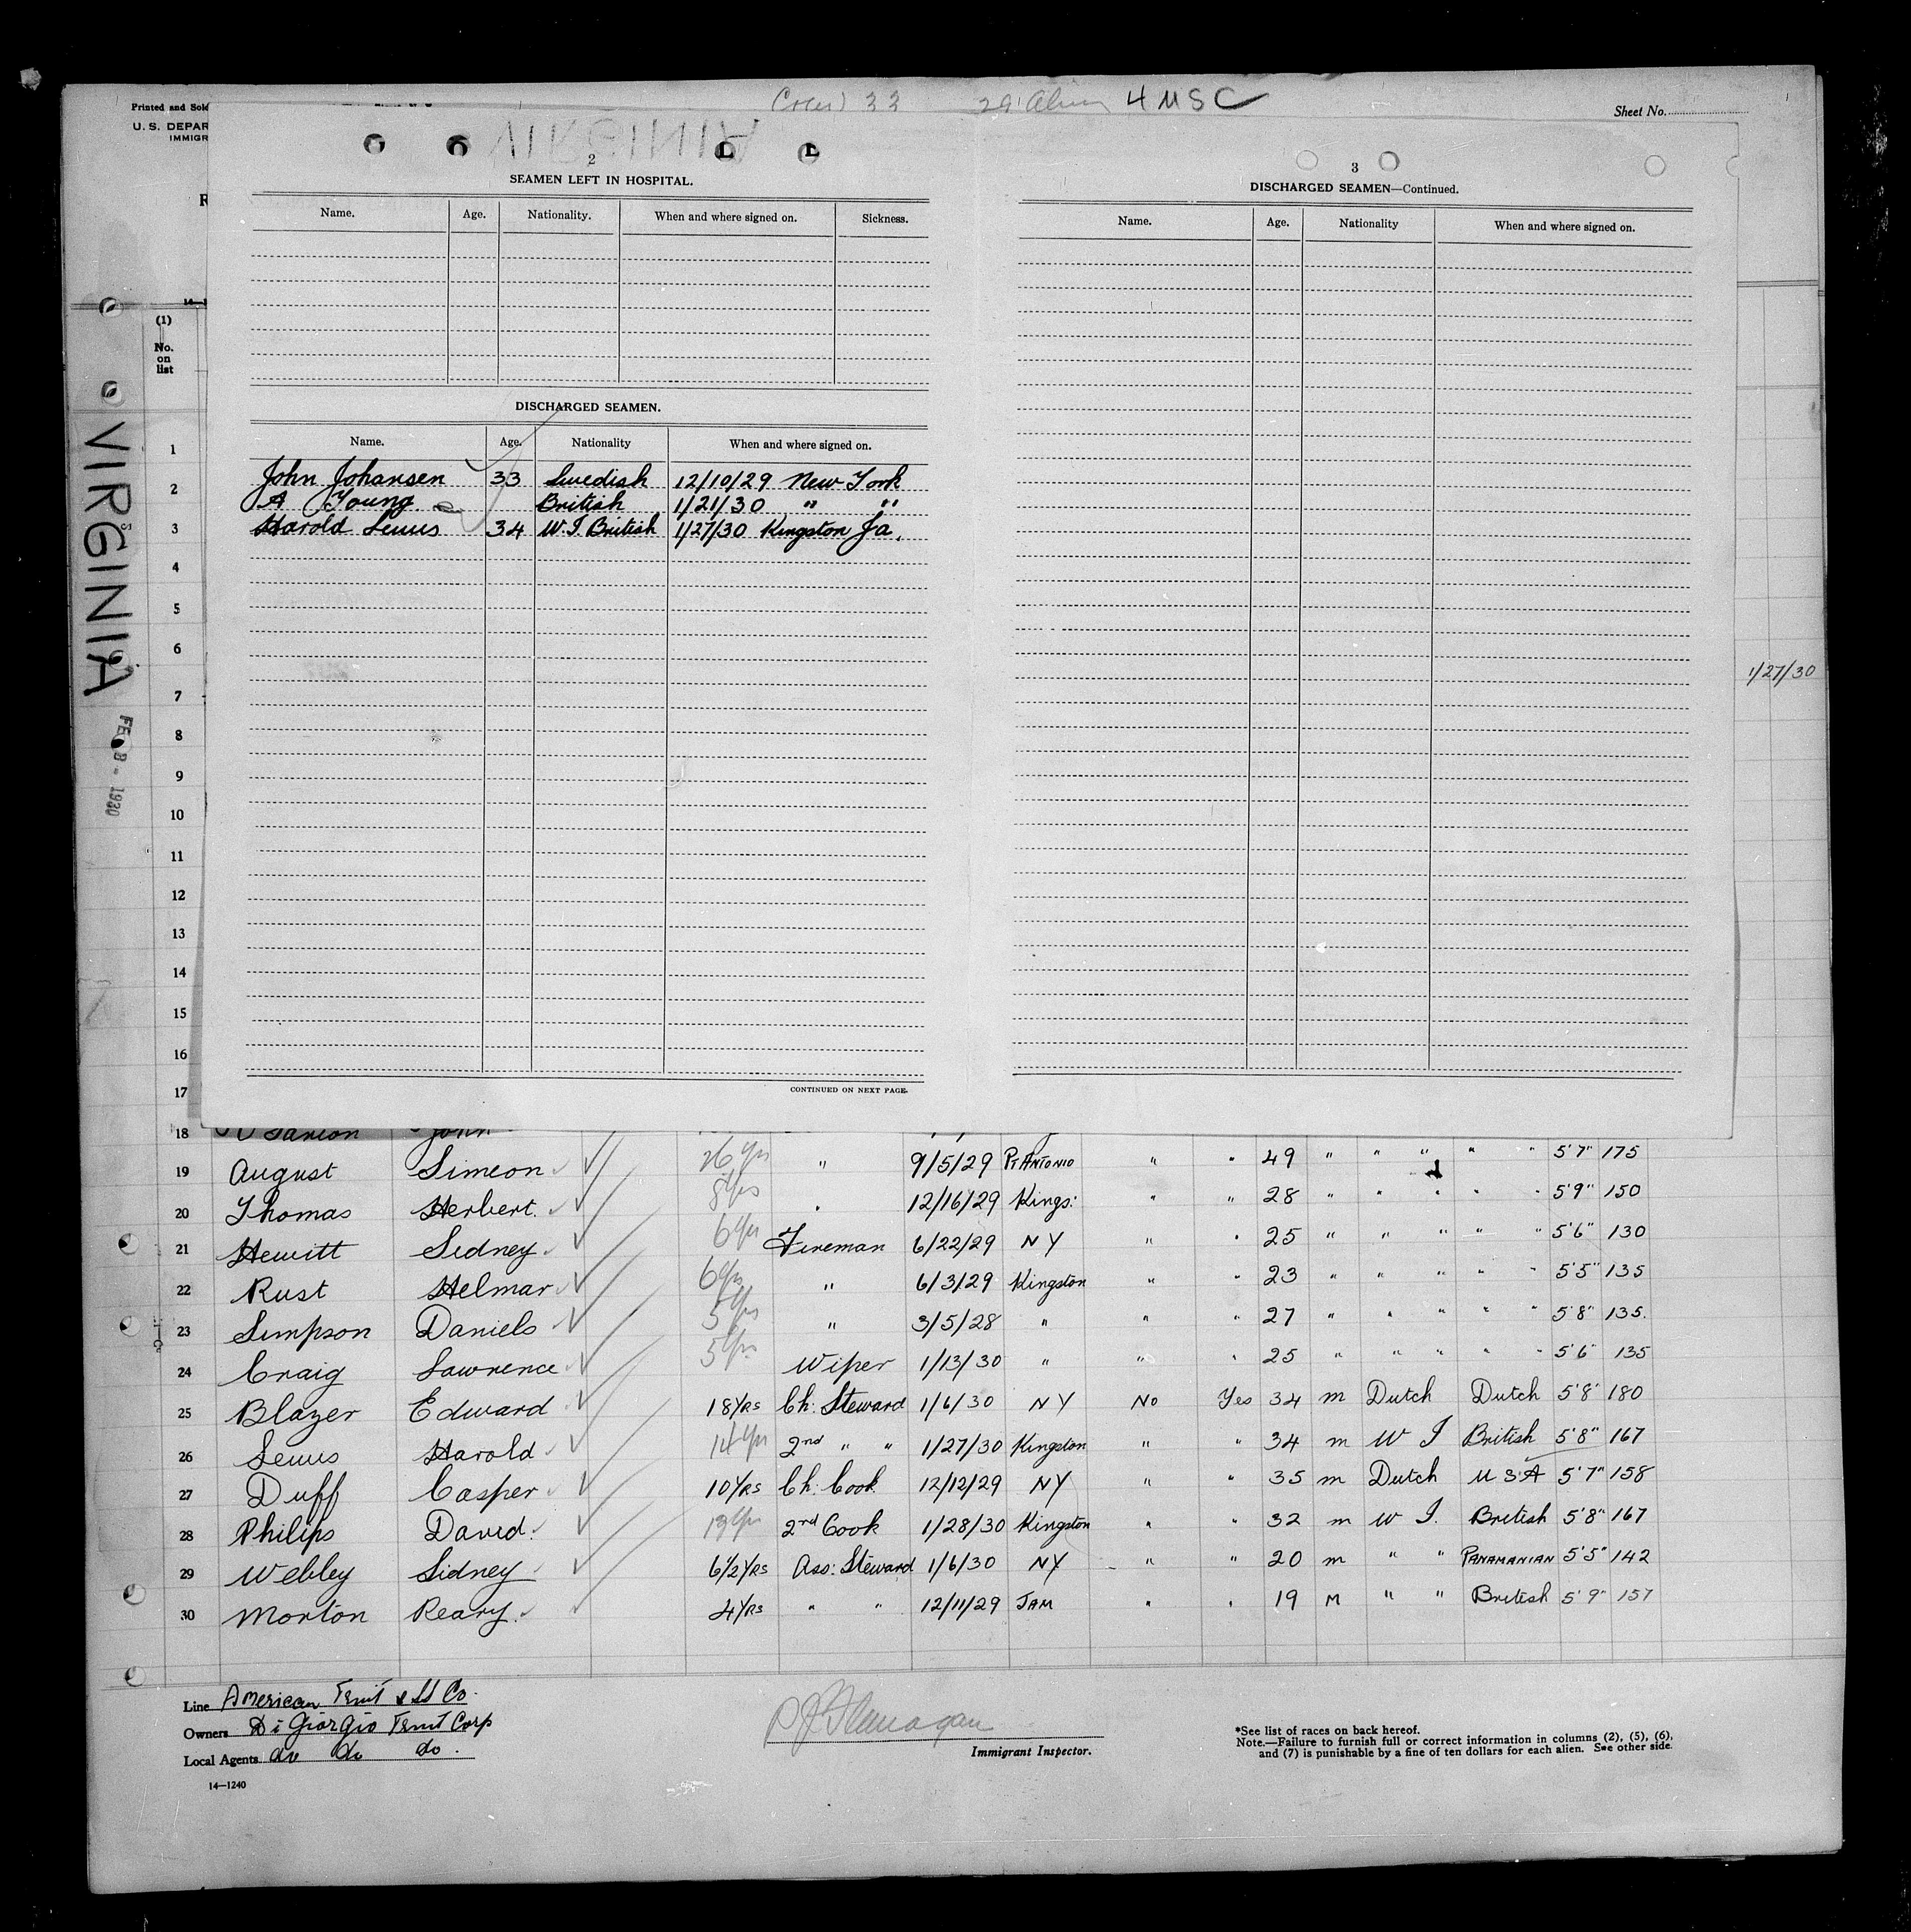 Crew 33 29 Alien 4 USC
Sheet No.
Printed and Sold
U. S. DEPAR
IMMIGR
VIRGINIA
2
SEAMEN LEFT IN HOSPITAL.
Name. Age. Nationality. When and where signed on. Sickness.
DISCHARGED SEAMEN.
Name. Age. Nationality When and where signed on.
John Johansen 33 Swedish 12/10/29 New York
A Young British 1/21/30 " "
Harold Lewis 34 W.I. British 1/27/30 Kingston Ja.
CONTINUED ON NEXT PAGE.
3
DISCHARGED SEAMEN—Continued.
Name. Age. Nationality When and where signed on.
1/27/30
(1)
No.
on
list
VIRGINIA
FEB 8 - 1930
1
2
3
4
5
6
7
8
9
10
11
12
13
14
15
16
17
18 John
19 August Simeon 26 yrs " 9/5/29 Pt Antonio " " 49 " " " " " 5'7" 175
20 Thomas Herbert. 8 yrs " 12/16/29 Kings: " " 28 " " " " " 5'9" 150
21 Hewitt Sidney 6 yrs Fireman 6/22/29 NY " " 25 " " " " " 5'6" 130
22 Rust Helmar 6 yrs " 6/3/29 Kingston " " 23 " " " " " 5'5" 135
23 Simpson Daniels 5 yrs " 3/5/28 " " " 27 " " " " " 5'8" 135.
24 Craig Lawrence 5 yrs Wiper 1/13/30 " " " 25 " " " " " 5'6" 135
25 Blazer Edward 18 YRS Ch: Steward 1/6/30 NY No Yes 34 m Dutch Dutch 5'8" 180
26 Lewis Harold 14 yrs 2nd " " 1/27/30 Kingston " " 34 m W I British 5'8" 167
27 Duff Casper 10 YRS Ch: Cook 12/12/29 NY " " 35 m Dutch U S A 5'7" 158
28 Philips David. 13 yrs 2nd Cook 1/28/30 Kingston " " 32 m W I. British 5'8" 167
29 Webley Sidney 6 1/2 YRS Ass: Steward 1/6/30 NY " " 20 m " " PANAMANIAN 5'5" 142
30 Morton Reary. 4 YRS " " 12/11/29 JAM " " 19 M " " British 5'9" 157
Line American Fruit & SS Co.
Owners Di Giorgio Fruit Corp
Local Agents do do do.
14—1240
P J Flanagan
Immigrant Inspector.
*See list of races on back hereof.
Note.—Failure to furnish full or correct information in columns (2), (5), (6),
and (7) is punishable by a fine of ten dollars for each alien. See other side.